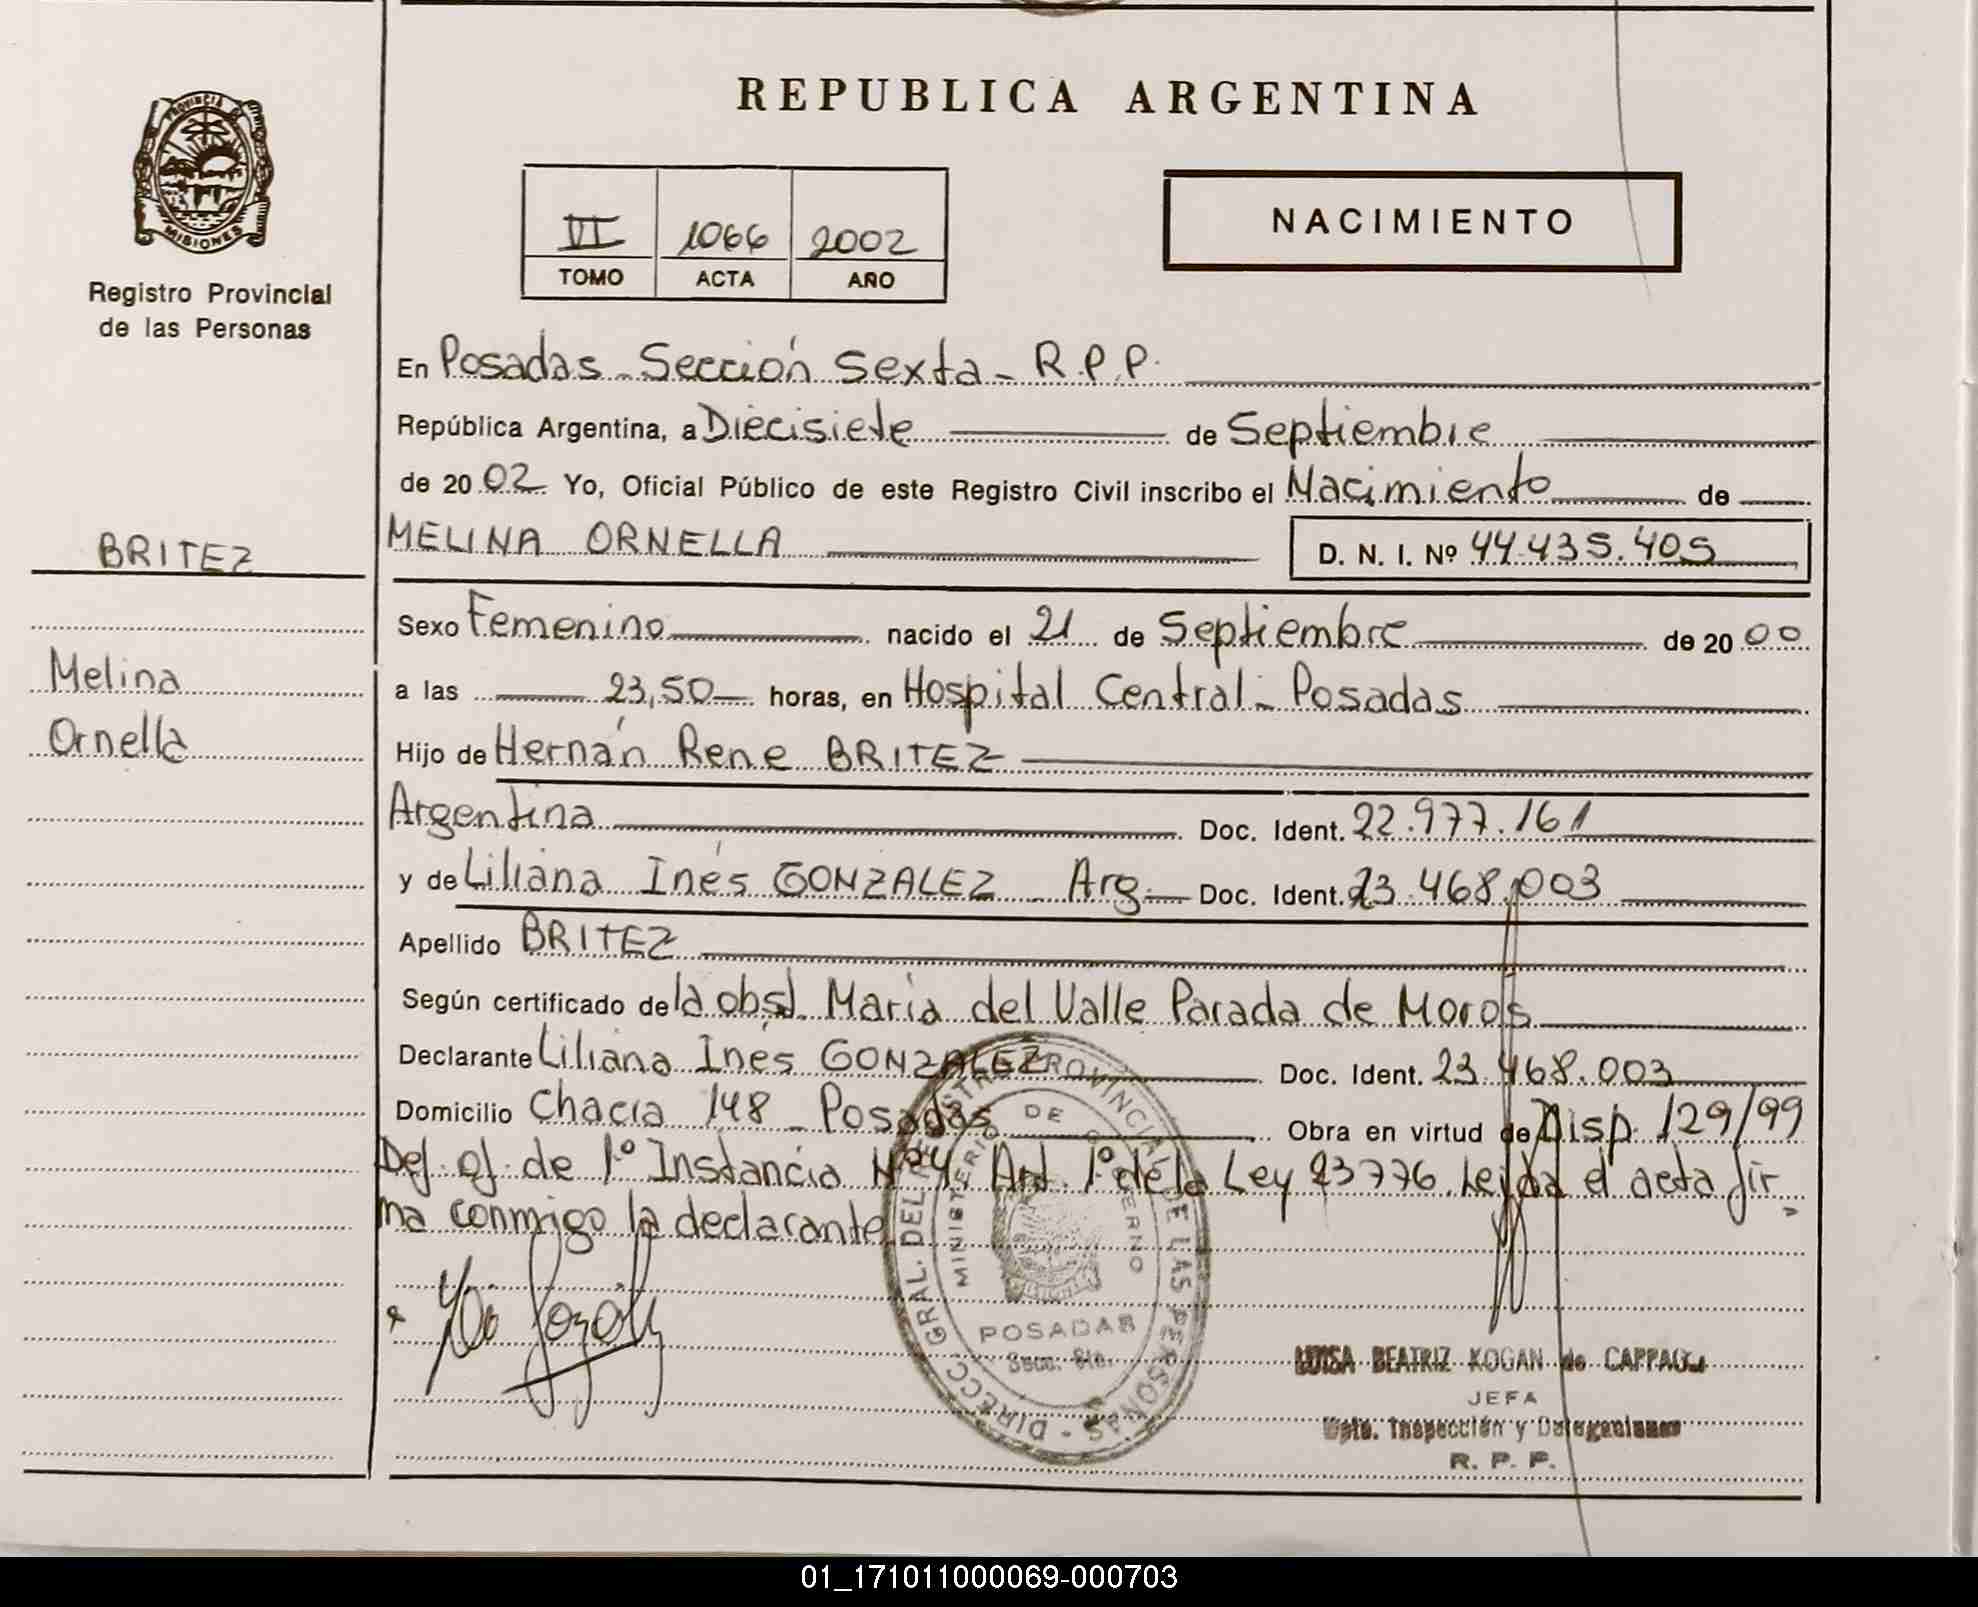 PROVINCIA DE
MISIONES
Registro Provincial
de las Personas
BRITEZ
Melina
Ornella
REPUBLICA ARGENTINA
VI 1066 2002
TOMO ACTA AÑO
NACIMIENTO
En Posadas - Sección Sexta - R.P.P.
República Argentina, a Diecisiete de Septiembre
de 2002 Yo, Oficial Público de este Registro Civil inscribo el Nacimiento de
MELINA ORNELLA D. N. I. Nº 44.435.405
Sexo Femenino nacido el 21 de Septiembre de 2000
a las 23,50 horas, en Hospital Central - Posadas
Hijo de Hernán Rene BRITEZ
Argentina Doc. Ident. 22.977.161
y de Liliana Inés GONZALEZ Arg. Doc. Ident. 23.468.003
Apellido BRITEZ
Según certificado de la obst. Maria del Valle Parada de Moros
Declarante Liliana Inés GONZALEZ Doc. Ident. 23.468.003
Domicilio Chacra 148 - Posadas Obra en virtud de Disp. 129/99
Def. of. de 1º Instancia Nº 4. Art. 1º de la Ley 23776. Leída el acta fir-
ma conmigo la declarante
DIRECC. GRAL. DEL REGISTRO PROVINCIAL DE LAS PERSONAS -
MINISTERIO DE GOBIERNO
POSADAS
Secc. 6ta.
LUISA BEATRIZ KOGAN de
JEFA
Dpto. Inspección y Delegaciones
R. P. P.
01_171011000069-000703